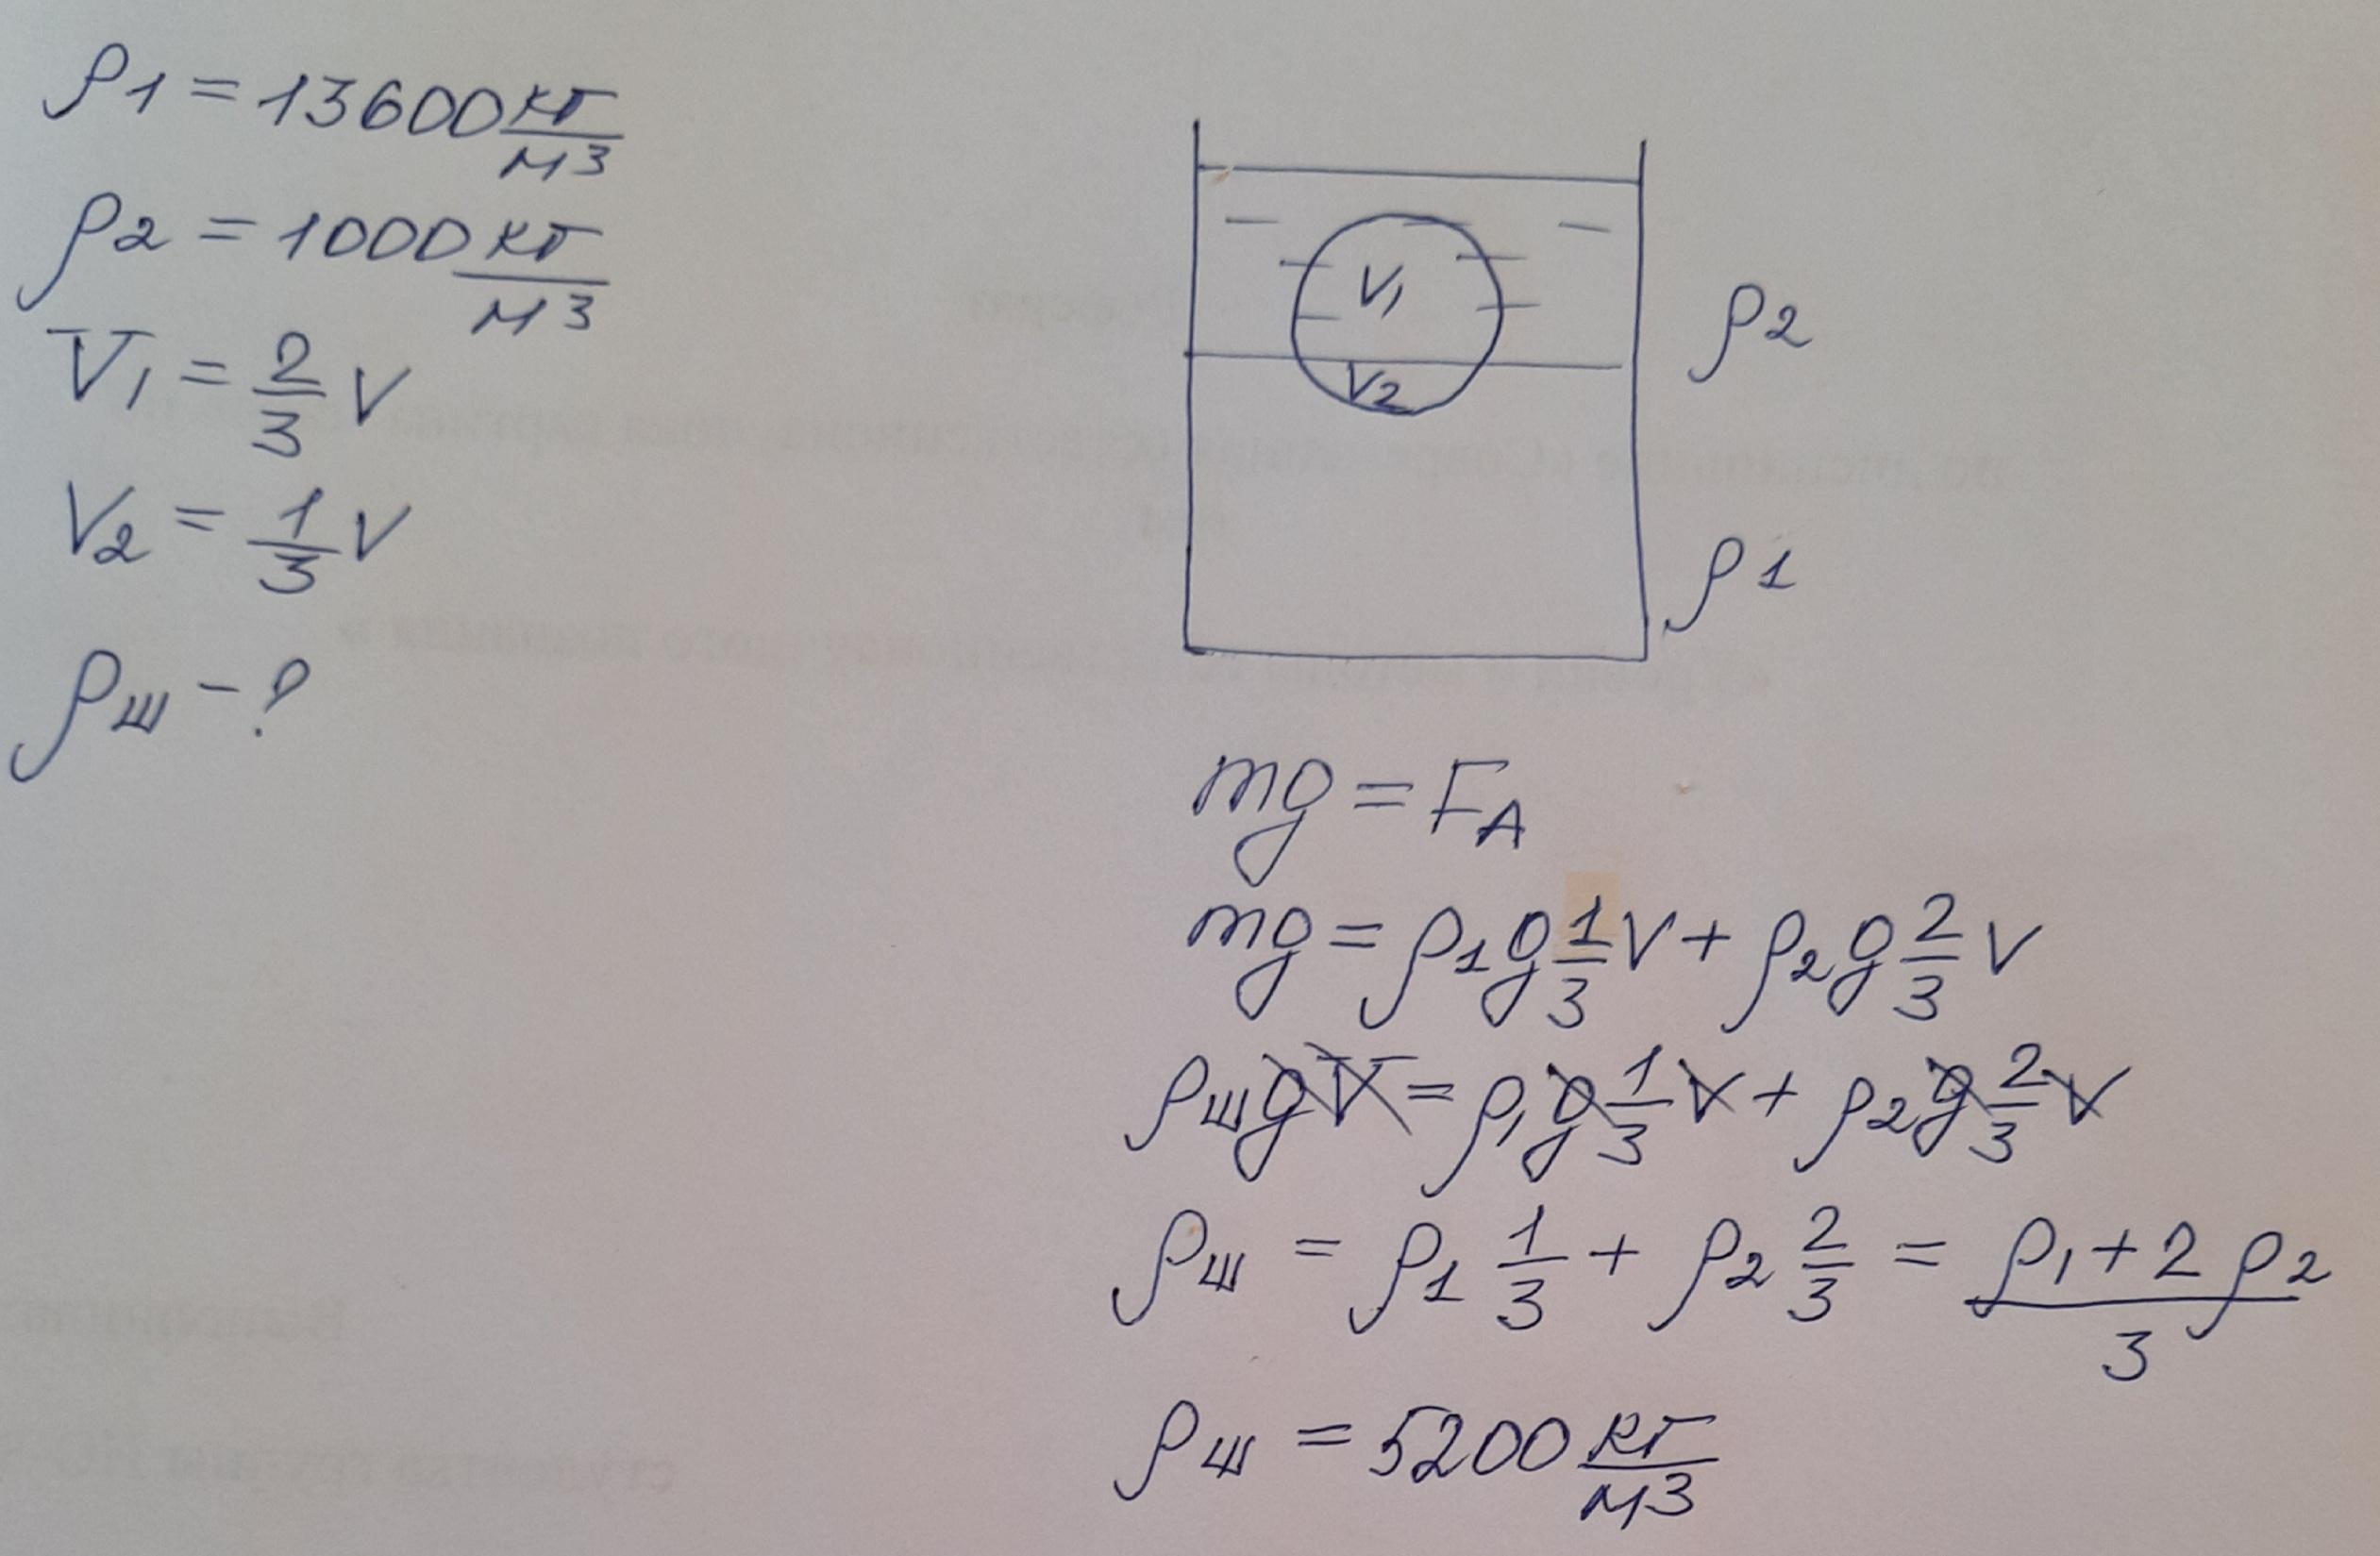 ρ1 = 13600 кг/м3
ρ2 = 1000 кг/м3
V1 = 2/3 V
V2 = 1/3 V
ρш - ?
V1
V2
ρ2
ρ1
mg = FA
mg = ρ1g 1/3 V + ρ2g 2/3 V
ρшgV = ρ1g 1/3 V + ρ2g 2/3 V
ρш = ρ1 1/3 + ρ2 2/3 = (ρ1 + 2ρ2)/3
ρш = 5200 кг/м3